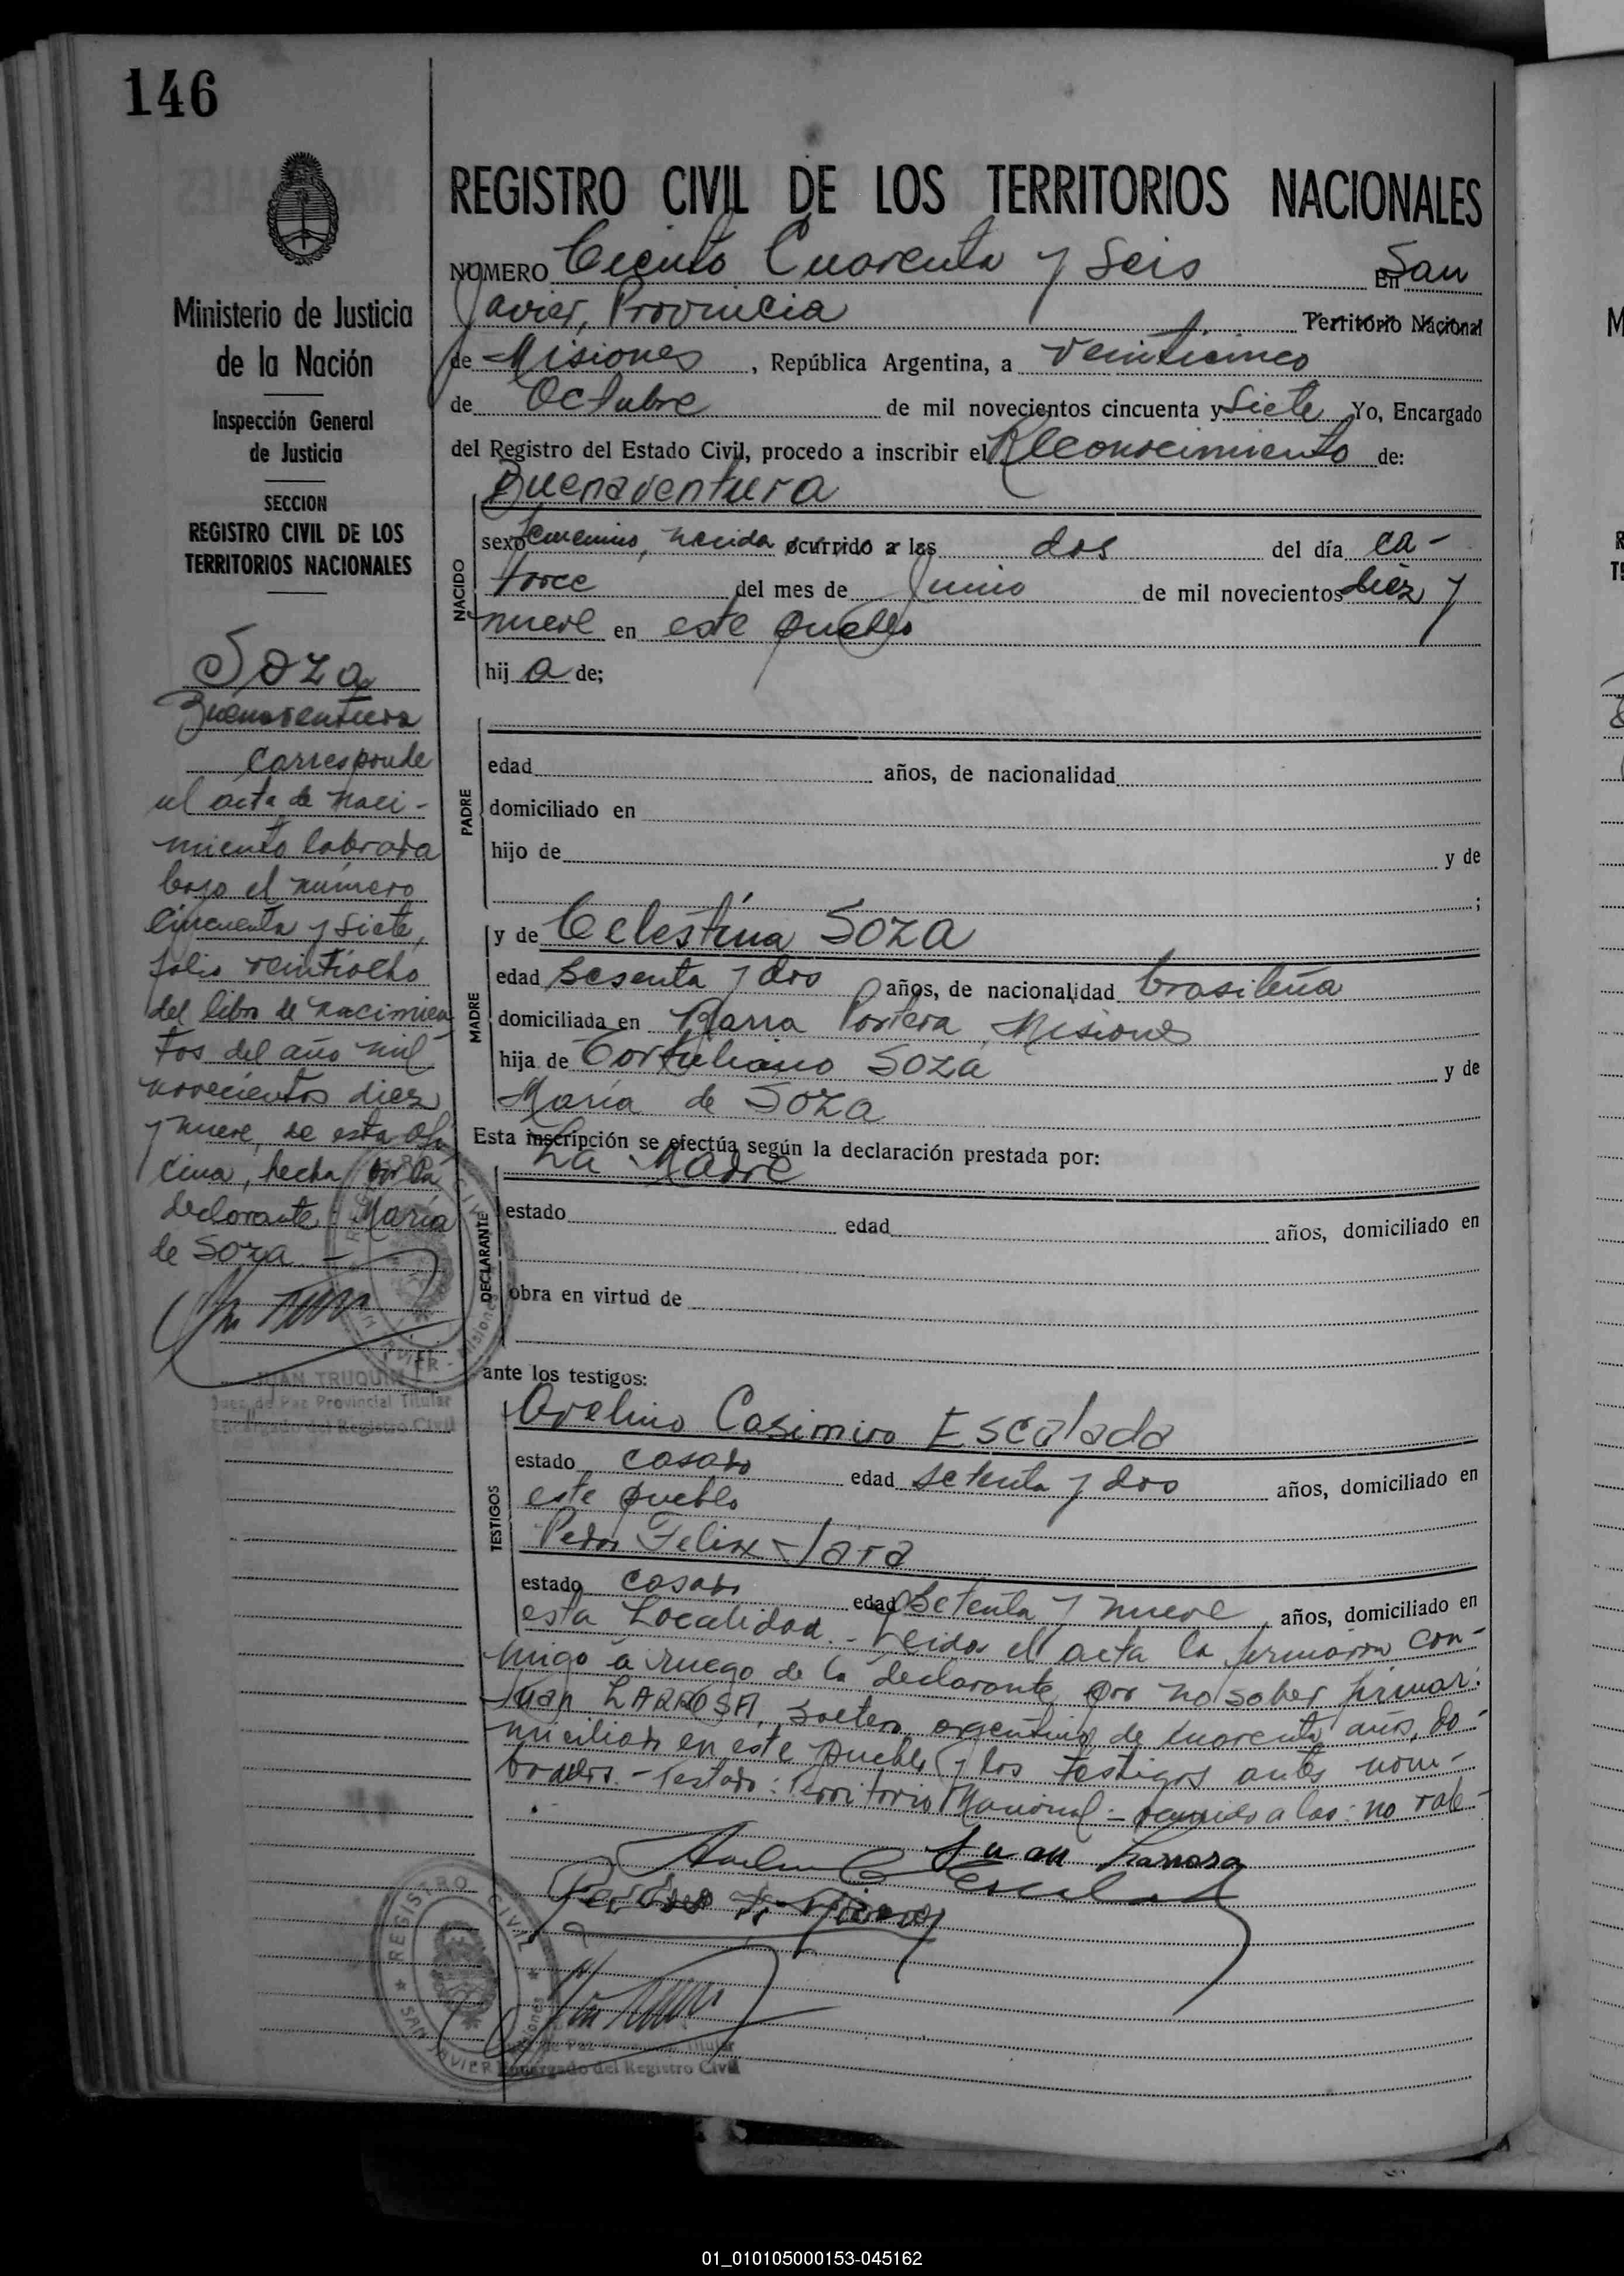 146
Ministerio de Justicia
de la Nación
Inspección General
de Justicia
SECCION
REGISTRO CIVIL DE LOS
TERRITORIOS NACIONALES
Soza
Buenaventura
Corresponde
al acta de naci-
miento labrada
bajo el número
cincuenta y siete,
folio veintiocho
del libro de nacimien
tos del año mil
novecientos diez
y nueve, de esta ofi
cina, hecha por la
declarante: María
de Soza. -
JUAN TRUQUIN
Juez de Paz Provincial Titular
Encargado del Registro Civil
REGISTRO CIVIL DE LOS TERRITORIOS NACIONALES
NUMERO Ciento Cuarenta y Seis En San
Javier, Provincia Territorio Nacional
de Misiones, República Argentina, a veinticinco
de Octubre de mil novecientos cincuenta y siete Yo, Encargado
del Registro del Estado Civil, procedo a inscribir el Reconocimiento de:
Buenaventura
NACIDO
sexo femenino, nacida ocurrido a las dos del día ca-
torce del mes de Junio de mil novecientos diez y
nueve en este pueblo
hij a de;
PADRE
edad años, de nacionalidad
domiciliado en
hijo de y de
;
MADRE
y de Celestina Soza
edad sesenta y dos años, de nacionalidad brasileña
domiciliada en Barra Portera, Misiones
hija de Tortuliano Soza y de
María de Soza
Esta inscripción se efectúa según la declaración prestada por:
La Madre
DECLARANTE
estado edad años, domiciliado en
obra en virtud de
ante los testigos:
TESTIGOS
Avelino Casimiro Escalada
estado casado edad setenta y dos años, domiciliado en
este pueblo
Pedro Felix Jara
estado casado edad setenta y nueve años, domiciliado en
esta Localidad. - Leida el acta la firmaron con-
migo a ruego de la declarante por no saber firmar:
Juan LARROSA, soltero argentino de cuarenta años, do-
miciliado en este pueblo y los testigos antes nom-
brados. - Testado: Territorio Nacional - ocurrido a las: no vale.
Juan Larrosa
REGISTRO CIVIL
SAN JAVIER Misiones
Juez de Paz Provincial Titular
Encargado del Registro Civil
01_010105000153-045162